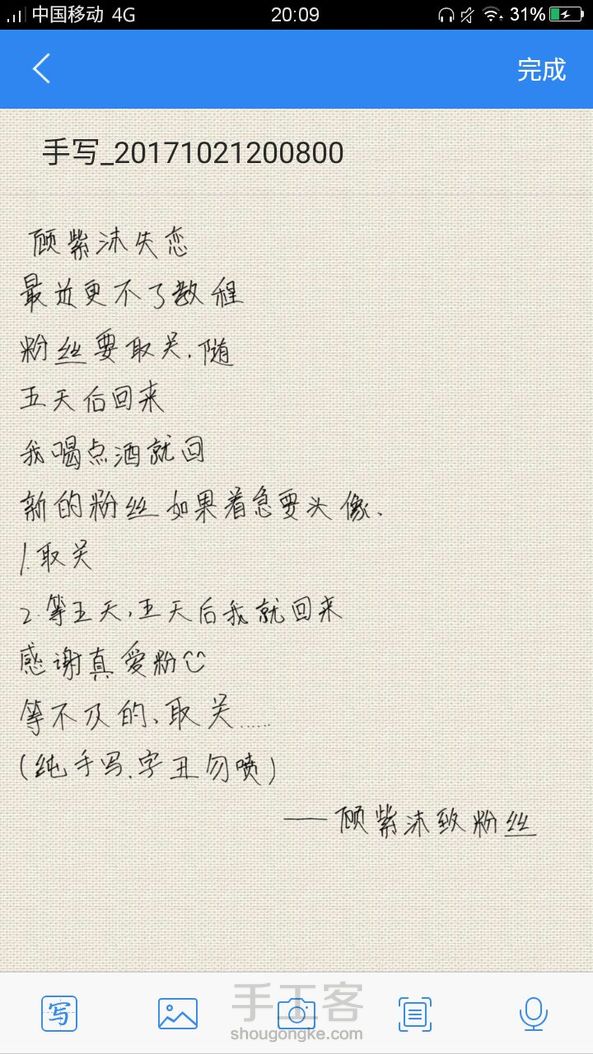 中国移动 4G 20:09 31%
完成
手写_20171021200800
顾紫沐失恋
最近更不了教程
粉丝要取关.随
五天后回来
我喝点酒就回
新的粉丝如果着急要头像、
1.取关
2.等五天,五天后我就回来
感谢真爱粉
等不及的、取关……
(纯手写.字丑勿喷)
——顾紫沐致粉丝
写
手工客
shougongke.com